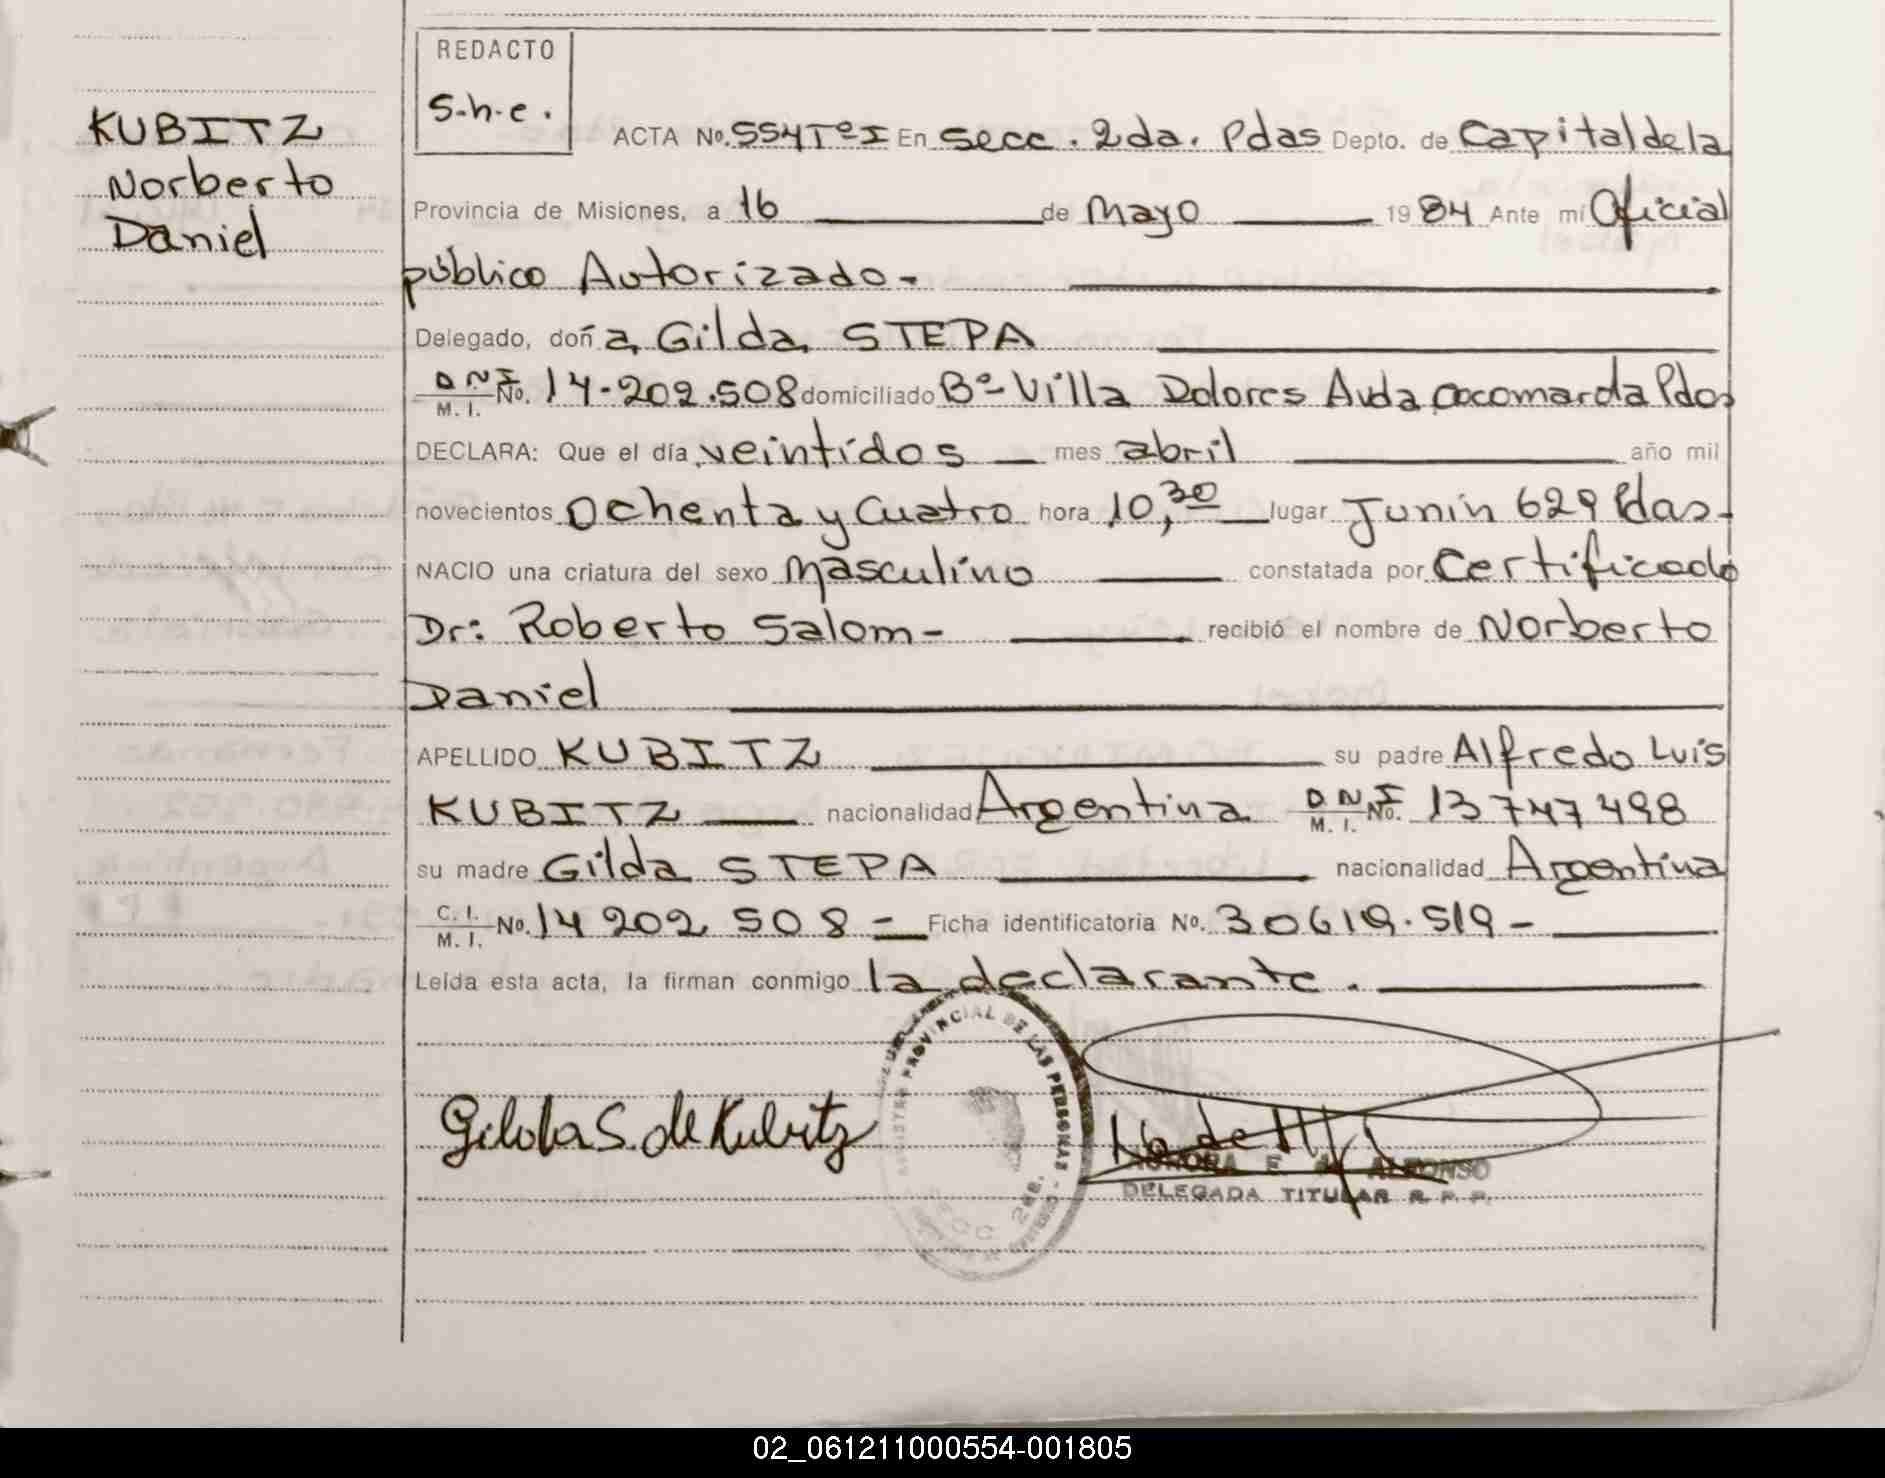 REDACTO
S.h.e.
KUBITZ
Norberto
Daniel
ACTA No. 554 Tº I En Secc. 2da. Pdas Depto. de Capital de la
Provincia de Misiones, a 16 de Mayo 1984 Ante mí Oficial
público Autorizado.-
Delegado, doña Gilda STEPA
DNI/M. I. No. 14.202.508 domiciliado Bº Villa Dolores Avda cocomarola Pdas
DECLARA: Que el día veintidos mes abril año mil
novecientos Ochenta y Cuatro hora 10,30 lugar Junín 629 Pdas-
NACIO una criatura del sexo Masculino constatada por Certificado
Dr: Roberto Salom- recibió el nombre de Norberto
Daniel
APELLIDO KUBITZ su padre Alfredo Luis
KUBITZ nacionalidad Argentina DNI/M. I. No. 13747498
su madre Gilda STEPA nacionalidad Argentina
C. I./M. I. No. 14 202 508 - Ficha identificatoria No. 30619.519-
Leída esta acta, la firman conmigo la declarante.
REGISTRO PROVINCIAL DE LAS PERSONAS
SECC 2da.
Gilda S. de Kubitz
AURORA E. de ALFONSO
DELEGADA TITULAR R. P. P.
02_061211000554-001805